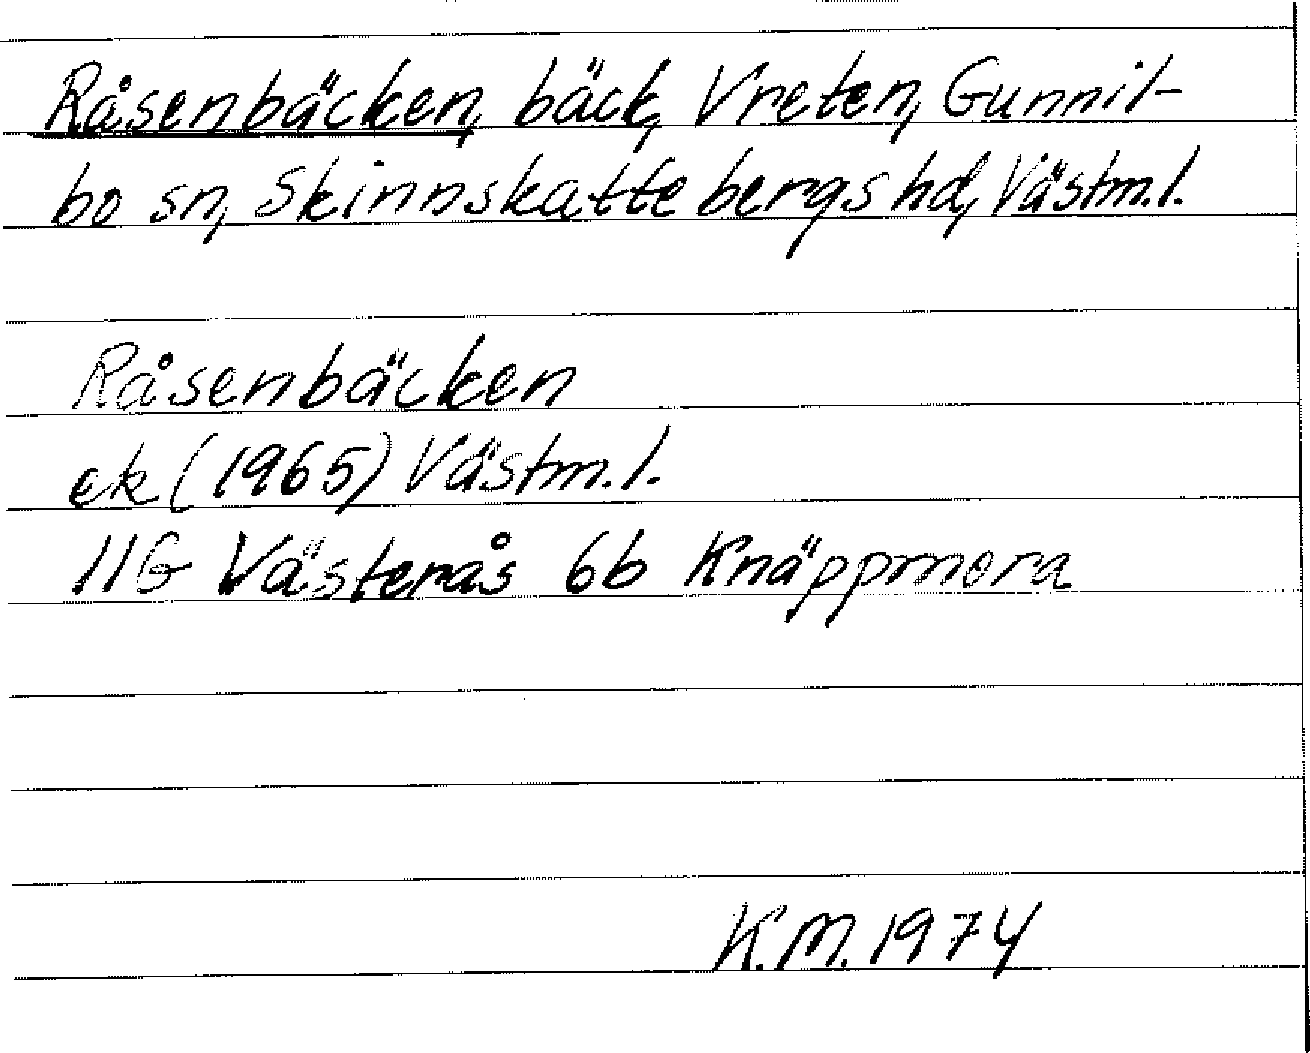 Råsenbäcken, bäck, Vreten, Gunnil-
bo sn, Skinnskattebergs hd, Västm.l.
Råsenbäcken
ek (1965) Västm.l.
11G Västerås 6b Knäppmora
K.M. 1974